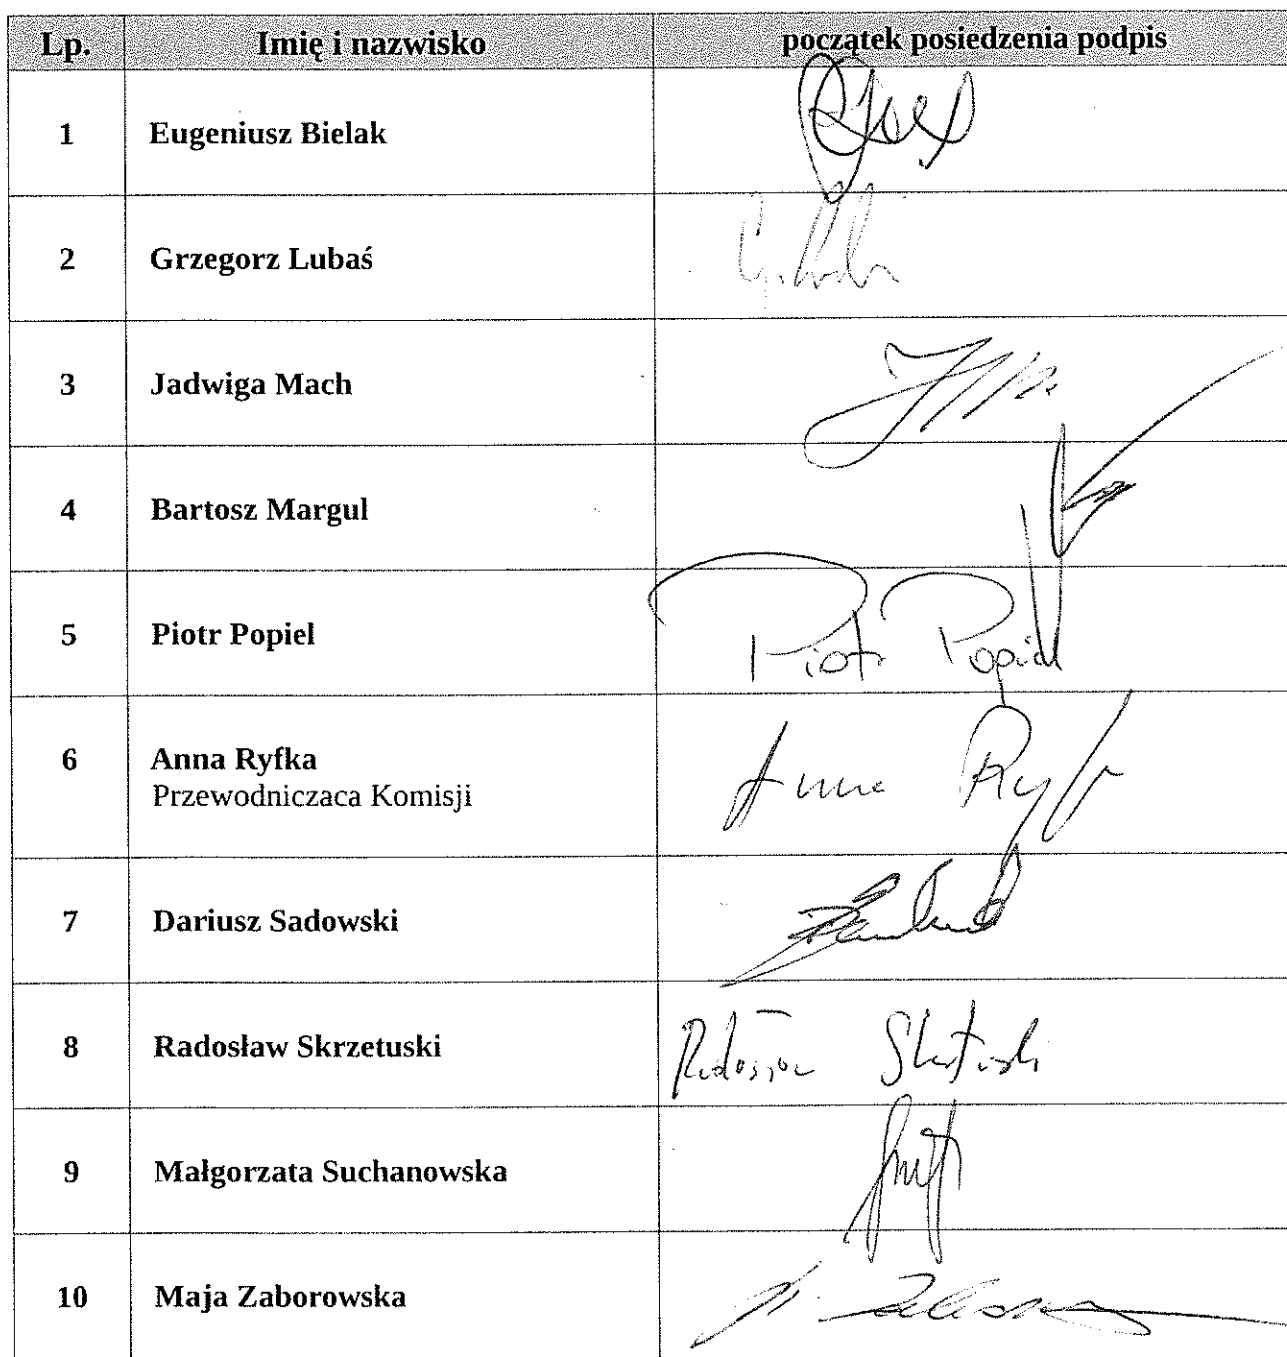 Lp. Imię i nazwisko początek posiedzenia podpis
1 Eugeniusz Bielak
2 Grzegorz Lubaś
3 Jadwiga Mach
4 Bartosz Margul
5 Piotr Popiel Piotr Popiel
6 Anna Ryfka Anna Ryf
Przewodniczaca Komisji
7 Dariusz Sadowski
8 Radosław Skrzetuski
9 Małgorzata Suchanowska
10 Maja Zaborowska